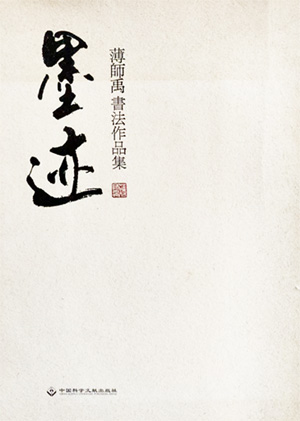 墨迹
薄師禹 書法作品集
中国科学文献出版社